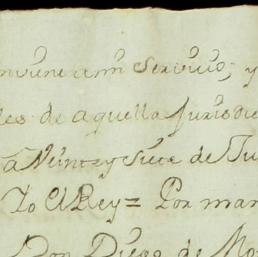 conviene a mi Servicio, y
les de aquella Jurisdic
a Veinte y Siete de Ju
Yo El Rey = Por man
Don Diego de Mo